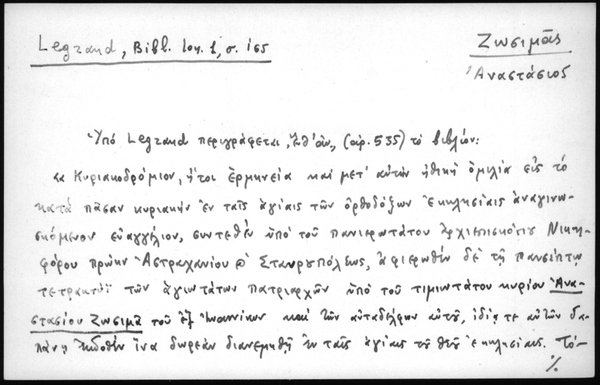 Legrand, Bibl. Ion. 1, σ. 165
Ζωσιμᾶς
Ἀναστάσιος
Ὑπό Legrand περιγράφεται, (ἀρ. 535) τό βιβλίον:
« Κυριακοδρόμιον, ἤτοι ἑρμηνεία καί μετ' αὐτήν ἠθική ὁμιλία εἰς τό
κατά πᾶσαν κυριακήν ἐν ταῖς ἁγίαις τῶν ὀρθοδόξων ἐκκλησίαις ἀναγινω-
σκόμενον εὐαγγέλιον, συντεθέν ὑπό τοῦ πανιερωτάτου ἀρχιεπισκόπου Νικη-
φόρου πρώην Ἀστραχανίου Σταυρουπόλεως, ἀφιερωθέν δέ τῇ πανσέπτῳ
τετρακτύϊ τῶν ἁγιωτάτων πατριαρχῶν ὑπό τοῦ τιμιωτάτου κυρίου Ἀνα-
στασίου Ζωσιμᾶ τοῦ ἐξ Ἰωαννίνων καί τῶν αὐταδέλφων αὐτοῦ, ἰδίᾳ τε αὐτῶν δα-
πάνῃ ἐκδοθέν ἵνα δωρεάν διανεμηθῇ ἐν ταῖς ἁγίαις τοῦ Θεοῦ ἐκκλησίαις. Τό-
./.